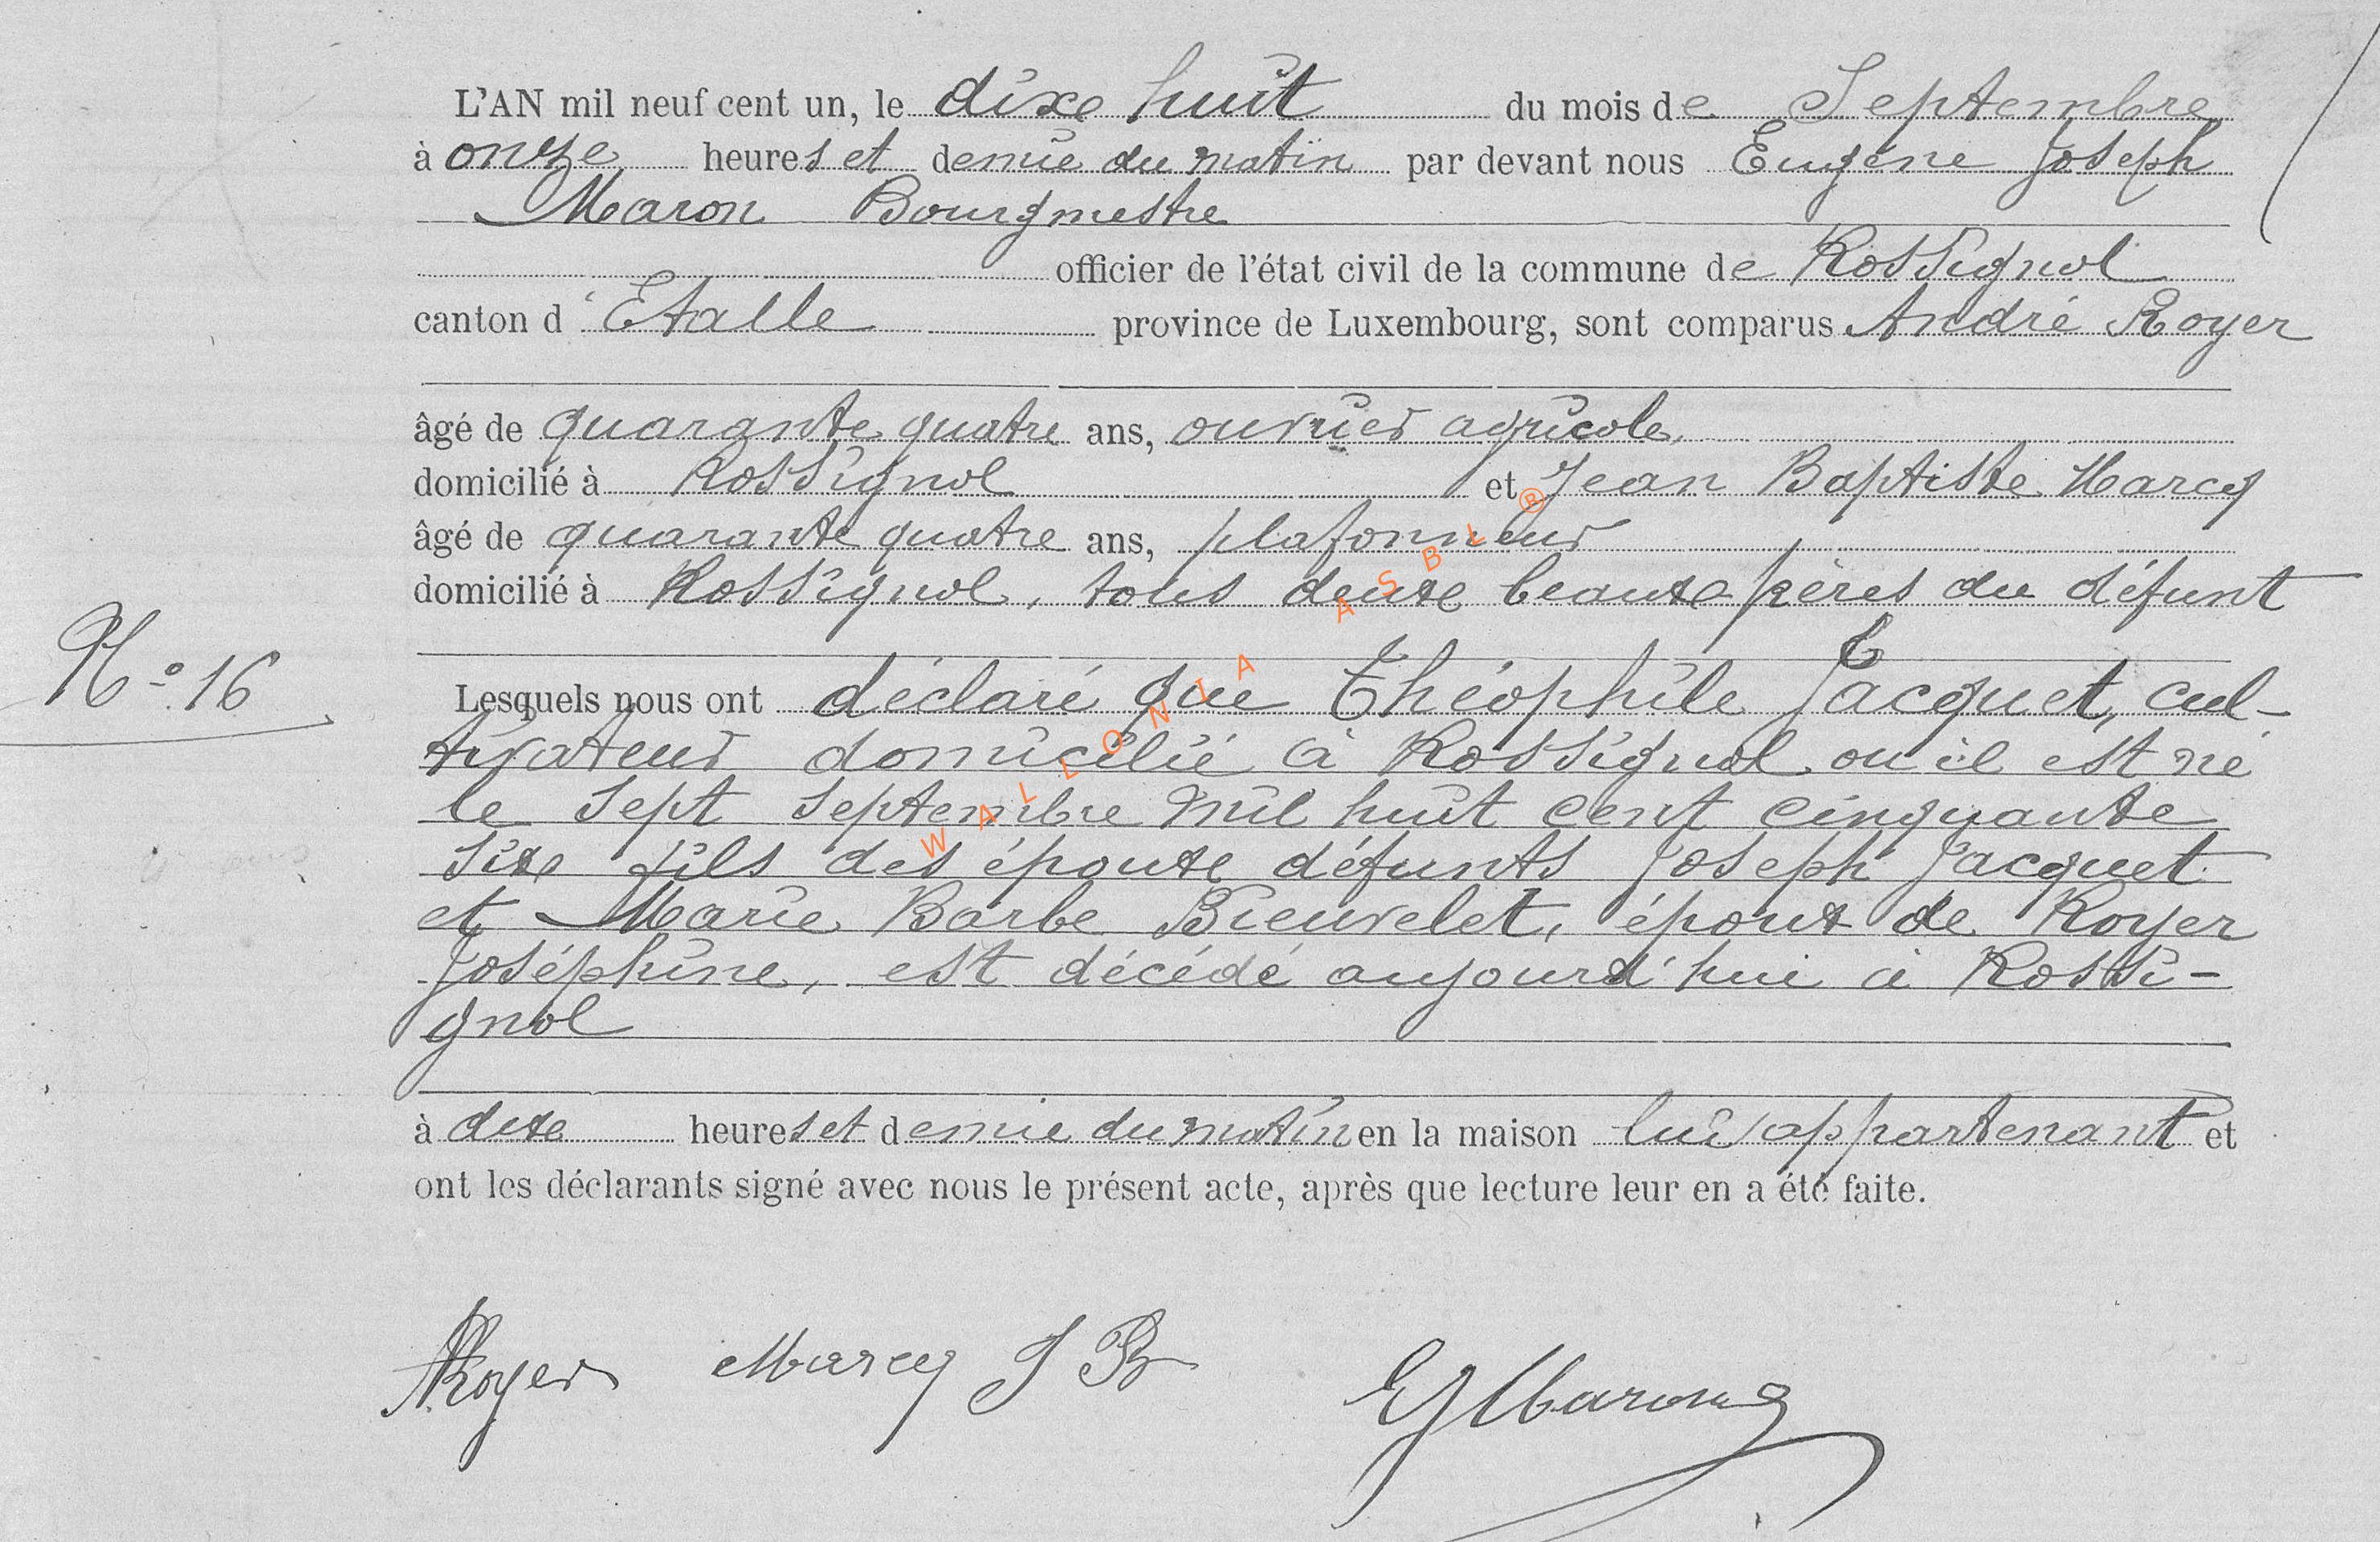 L'AN mil neuf cent un, le dix huit du mois de Septembre
à onze heures et demie du matin par devant nous Eugène Joseph
Maron Bourgmestre
officier de l'état civil de la commune de Rossignol
canton d'Etalle province de Luxembourg, sont comparus André Royer
âgé de quarante quatre ans, ouvrier agricole,
domicilié à Rossignol et Jean Baptiste Marcq
âgé de quarante quatre ans, plafonneur
domicilié à Rossignol, tous deux beaux pères du défunt
N° 16
Lesquels nous ont déclaré que Théophile Jacquet, cul-
tivateur domicilié à Rossignol ou il est né
le sept septembre mil huit cent cinquante
six fils des époux défunts Joseph Jacquet
et Marie Barbe Bieuvelet, époux de Royer
Joséphine, est décédé aujourd'hui à Rossi-
gnol
à dix heures et demie du matin en la maison lui appartenant et
ont les déclarants signé avec nous le présent acte, après que lecture leur en a été faite.
A Royer Marcq J B EJ Maron
WALLONIA ASBL ®